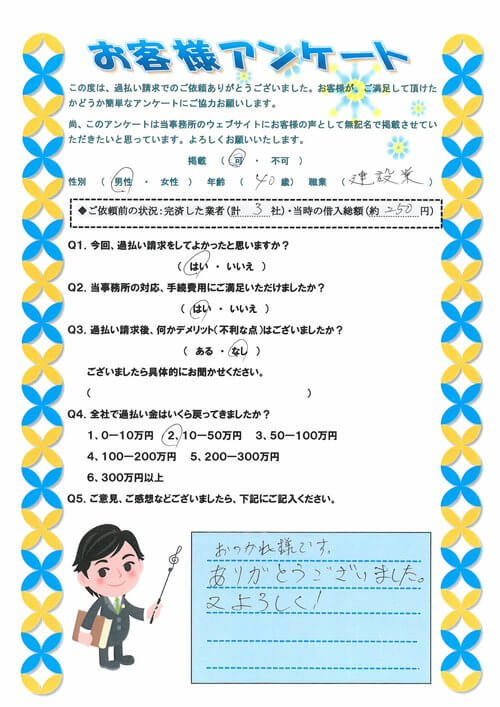 お客様アンケート
この度は、過払い請求でのご依頼ありがとうございました。お客様が、ご満足して頂けた
かどうか簡単なアンケートにご協力お願いします。
尚、このアンケートは当事務所のウェブサイトにお客様の声として無記名で掲載させてい
ただきたいと思っています。よろしくお願いいたします。
掲載 （ 可 ・ 不可 ）
性別 （ 男性 ・ 女性 ） 年齢 （ 40 歳） 職業 （ 建設業 ）
◆ご依頼前の状況：完済した業者（計 3 社）・当時の借入総額（約 250 円）
Q1. 今回、過払い請求をしてよかったと思いますか？
（ はい ・ いいえ ）
Q2. 当事務所の対応、手続費用にご満足いただけましたか？
（ はい ・ いいえ ）
Q3. 過払い請求後、何かデメリット（不利な点）はございましたか？
（ ある ・ なし ）
ございましたら具体的にお聞かせください。
（ ）
Q4. 全社で過払い金はいくら戻ってきましたか？
1、0－10万円 2、10－50万円 3、50－100万円
4、100－200万円 5、200－300万円
6、300万円以上
Q5. ご意見、ご感想などございましたら、下記にご記入ください。
おつかれ様です。
ありがとうございました。
又よろしく！